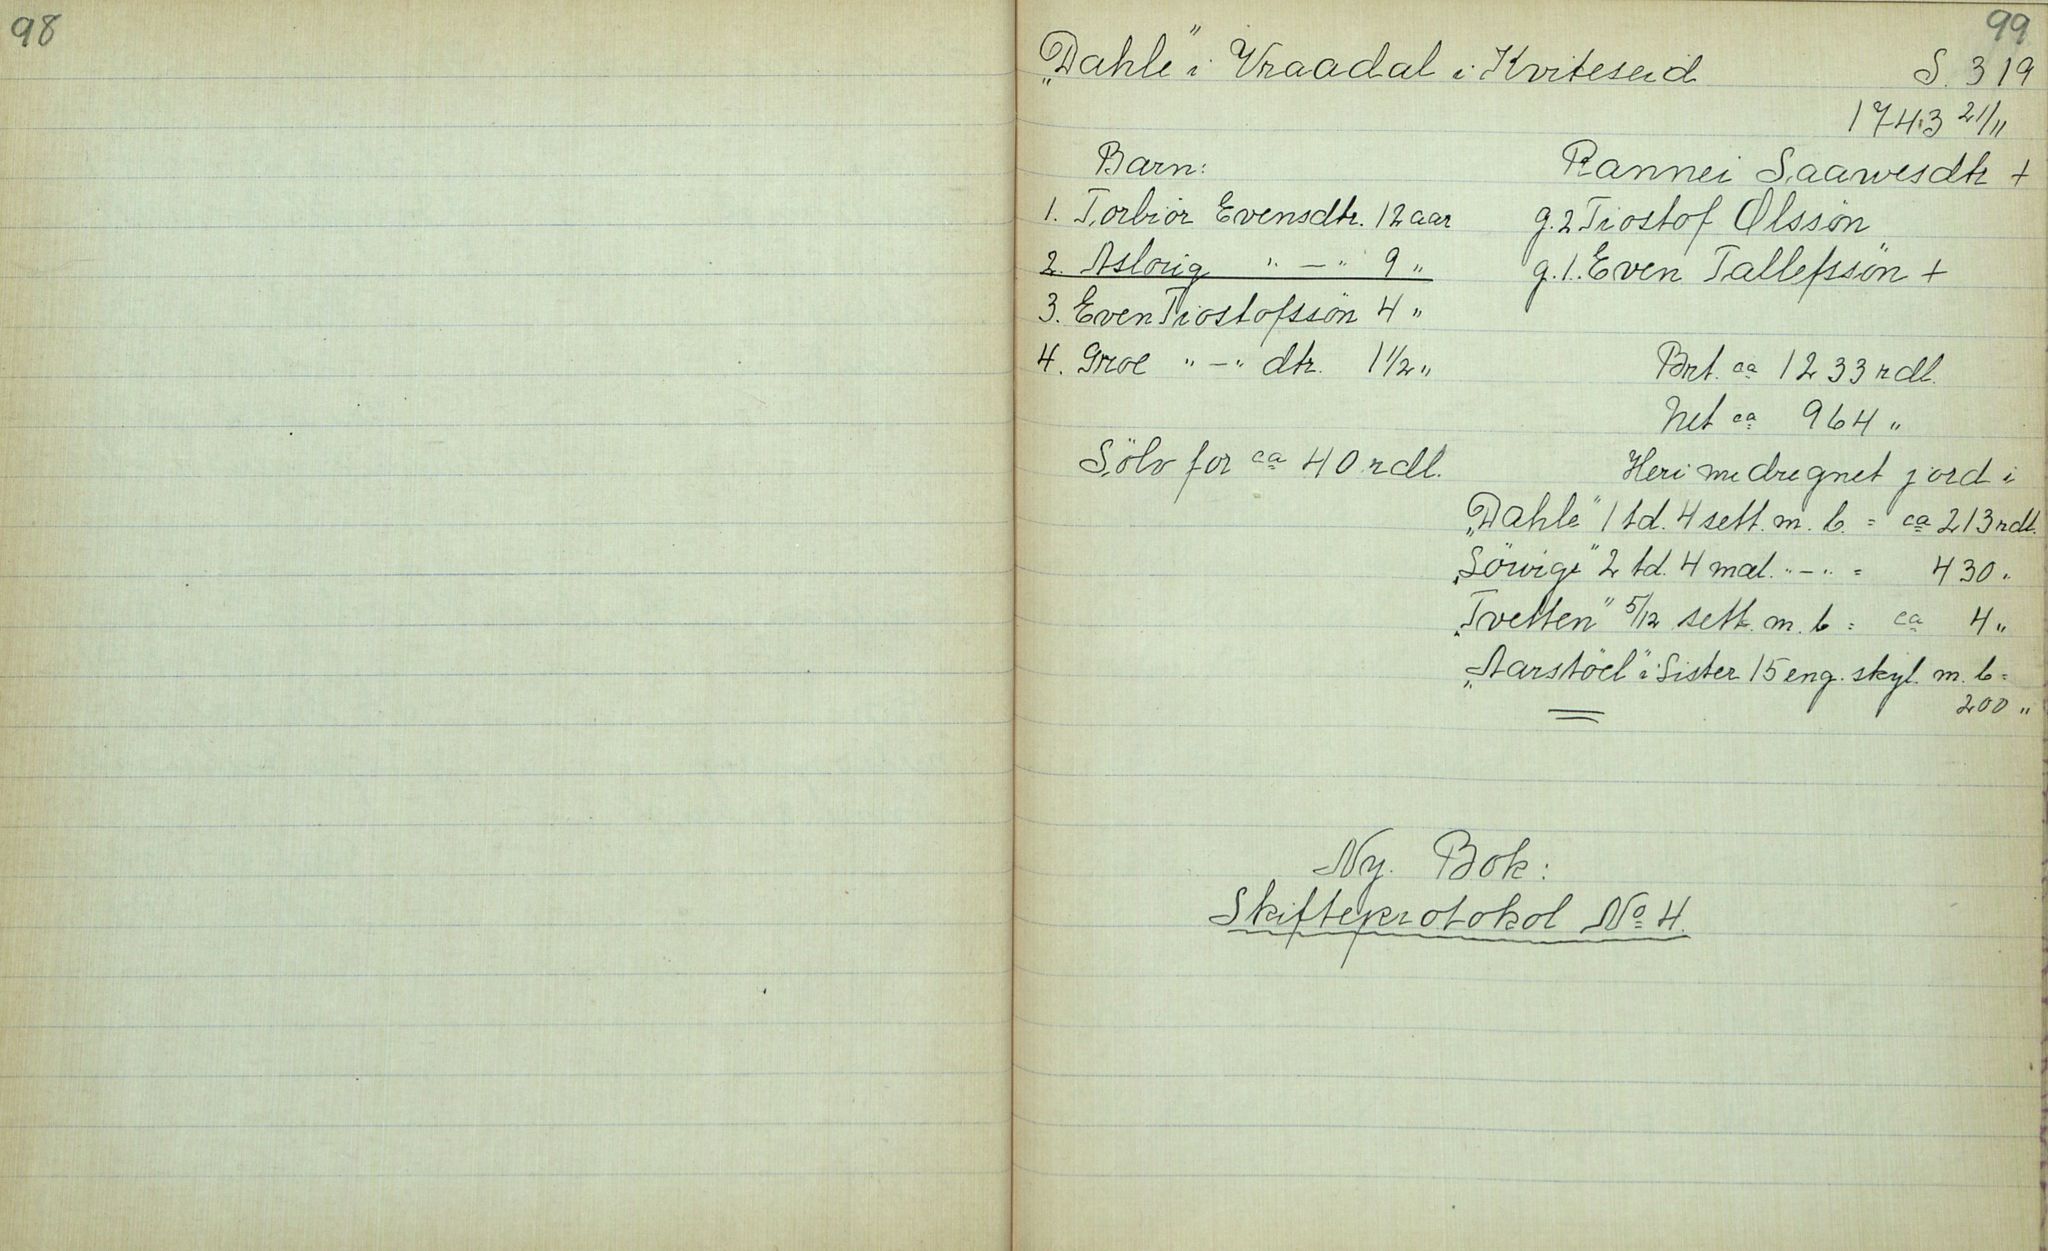 98
99
„Dahle" i Vraadal i Kviteseid S. 319
1743 21/11
Barn: Rannei Saawesdtr +
1. Torbiör Evensdtr. 12 aar g. 2 Tiostof Olssön
2. Aslovig " — " 9 " g. 1. Even Tallefssön +
3. Even Tiostofssön 4 "
4. Groe " — " dtr. 1 1/2 " Brt. ca 1233 rdl.
Net ca 964 "
Sölv for ca 40 rdl. Heri medregnet jord i
„Dahle" 1 td. 4 sett. m. b. = ca 213 rdl.
„Sövige" 2 td. 4 mæl. " — " = 430 "
„Tvetten" 5/12 sett. m. b = ca 4 "
„Aarstöel" i Sister 15 eng. skyl. m. b =
200 "
Ny Bok:
Skifteprotokol No 4.